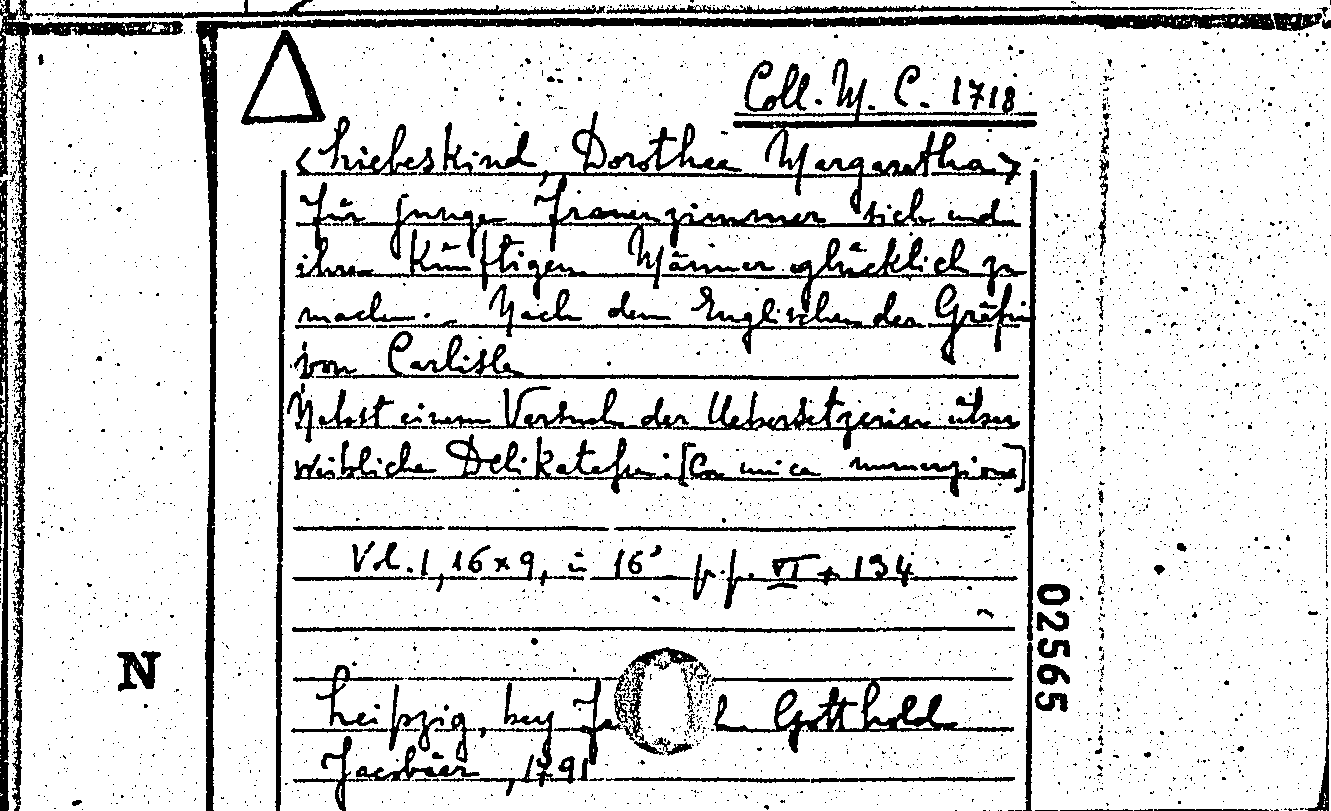 Coll. M. C. 1718
<Liebeskind, Dorothea Margaretha>
Für junge Frauenzimmer sich und
ihre künftigen Männer glücklich zu
machen. - Nach dem Englischen der Gräfin
von Carlisle
Nebst einem Versuch der Uebersetzerin über
weibliche Delikatesse. [Con unica numerazione]
Vol. 1, 16x9, in 16° p.p. VI + 134
Leipzig, bey Gotthold
Jacobäer, 1791
N
02565